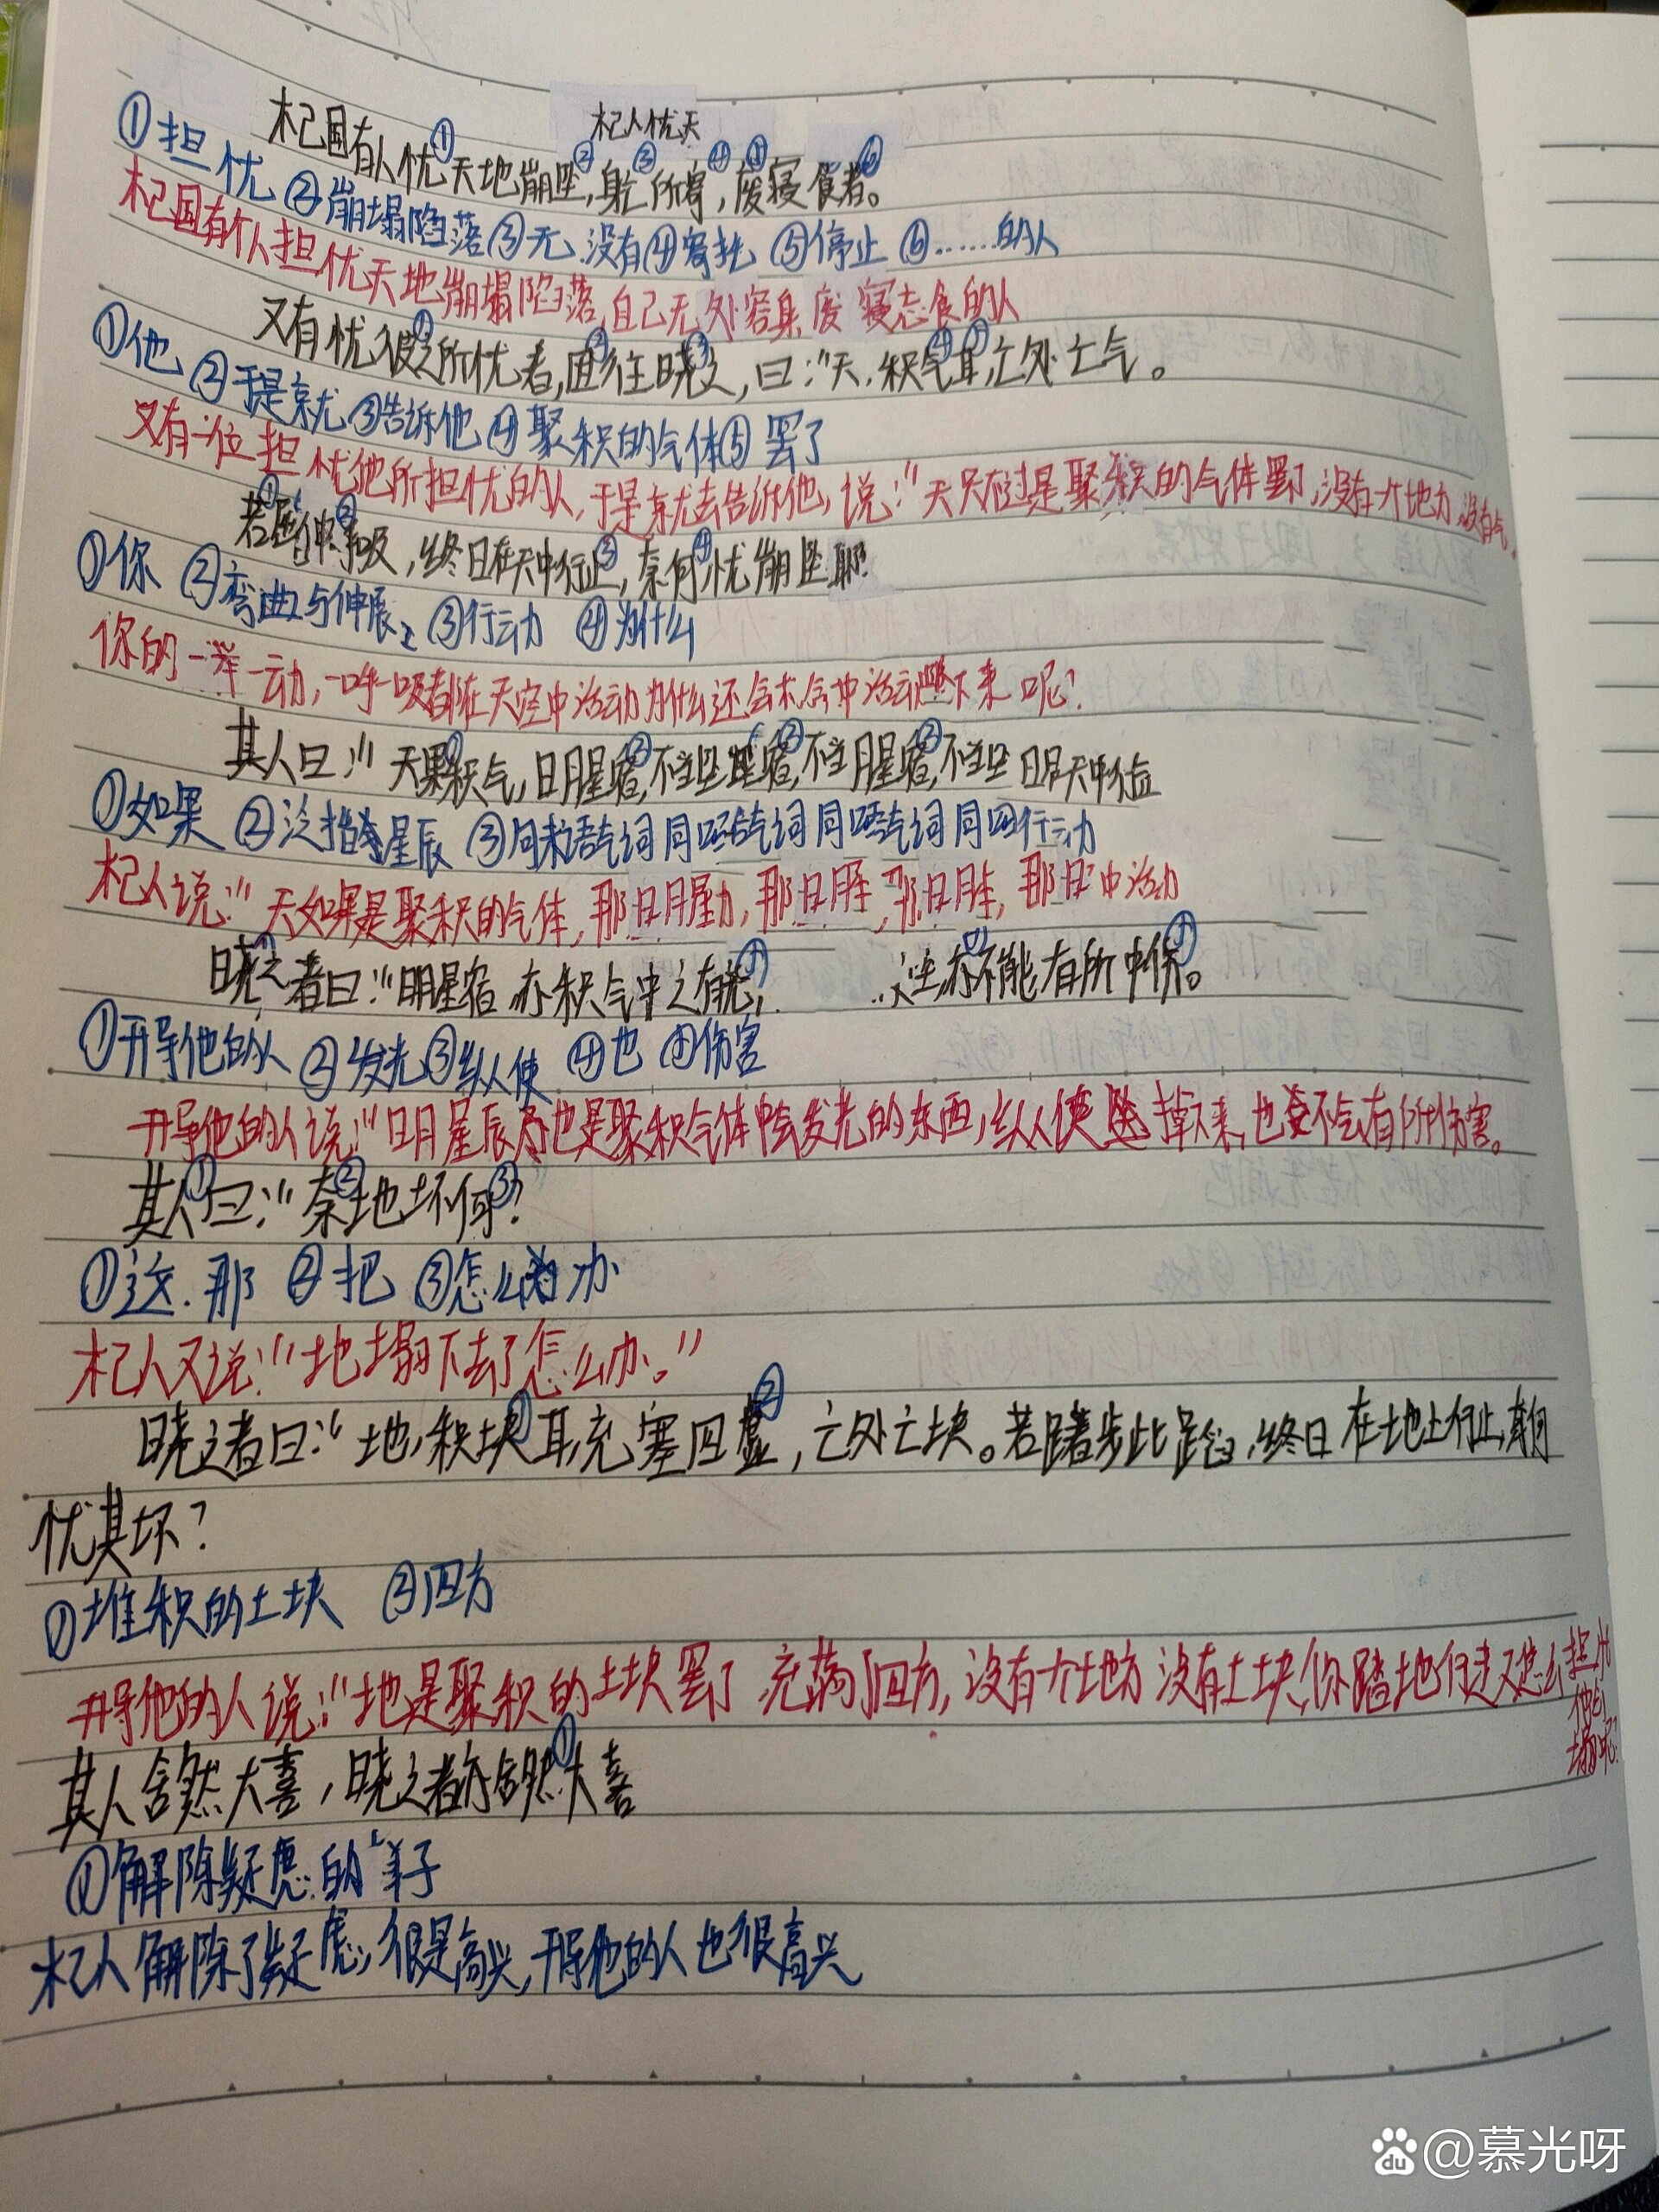 杞人忧天
杞国有人忧①天地崩坠②,身亡③所寄④,废⑤寝食者⑥。
①担忧 ②崩塌陷落 ③无.没有 ④寄托 ⑤停止 ⑥……的人
杞国有个人担忧天地崩塌陷落,自己无处容身,废寝忘食的人
又有忧彼之所忧者,因往晓之,曰:"天,积气耳,亡处亡气。
①他 ②于是就 ③告诉他 ④聚积的气体 ⑤罢了
又有一位担忧他所担忧的人,于是就去告诉他,说:"天只不过是聚积的气体罢了,没有个地方没有气。
若屈伸呼吸,终日在天中行止③,奈何④忧崩坠耶?
①你 ②弯曲与伸展 ③行动 ④为什么
你的一举一动,一呼一吸都在天空中活动为什么还会 下来呢?
其人曰:"天果积气,日月星宿②,不当坠 不当 月星宿②,不当坠 天中行止
①如果 ②泛指星辰 ③ 语气词 同 语气词 同 语气词 同 行动
杞人说:"天如果是聚积的气体,那日月 ,那 ,那 ,那 中活动
晓之者曰:"日月星宿亦积气中之有光, 坠,亦不能有所中伤。
①开导他的人 ②发光 ③纵使 ④也 ⑤伤害
开导他的人说:"日月星辰 也是聚积气体中会发光的东西,纵使 掉下来,也 不会有所伤害。
其①人曰:"奈②地坏何③?
①这.那 ②把 ③怎么 办
杞人又说:"地塌下去了怎么办。"
晓之者曰:"地,积块①耳,充塞四虚②,亡处亡块。若躇步跐蹈,终日在地上行止,奈何
忧其坏?
①堆积的土块 ②四方
开导他的人说:"地是聚积的土块罢了 充满了四方,没有个地方没有土块,你踏地行走又怎么担忧
他会
塌呢?
其人舍然大喜,晓之者亦舍然①大喜
①解除疑虑的样子
杞人解除了疑虑,很是高兴,开导他的人也很高兴
du @慕光呀